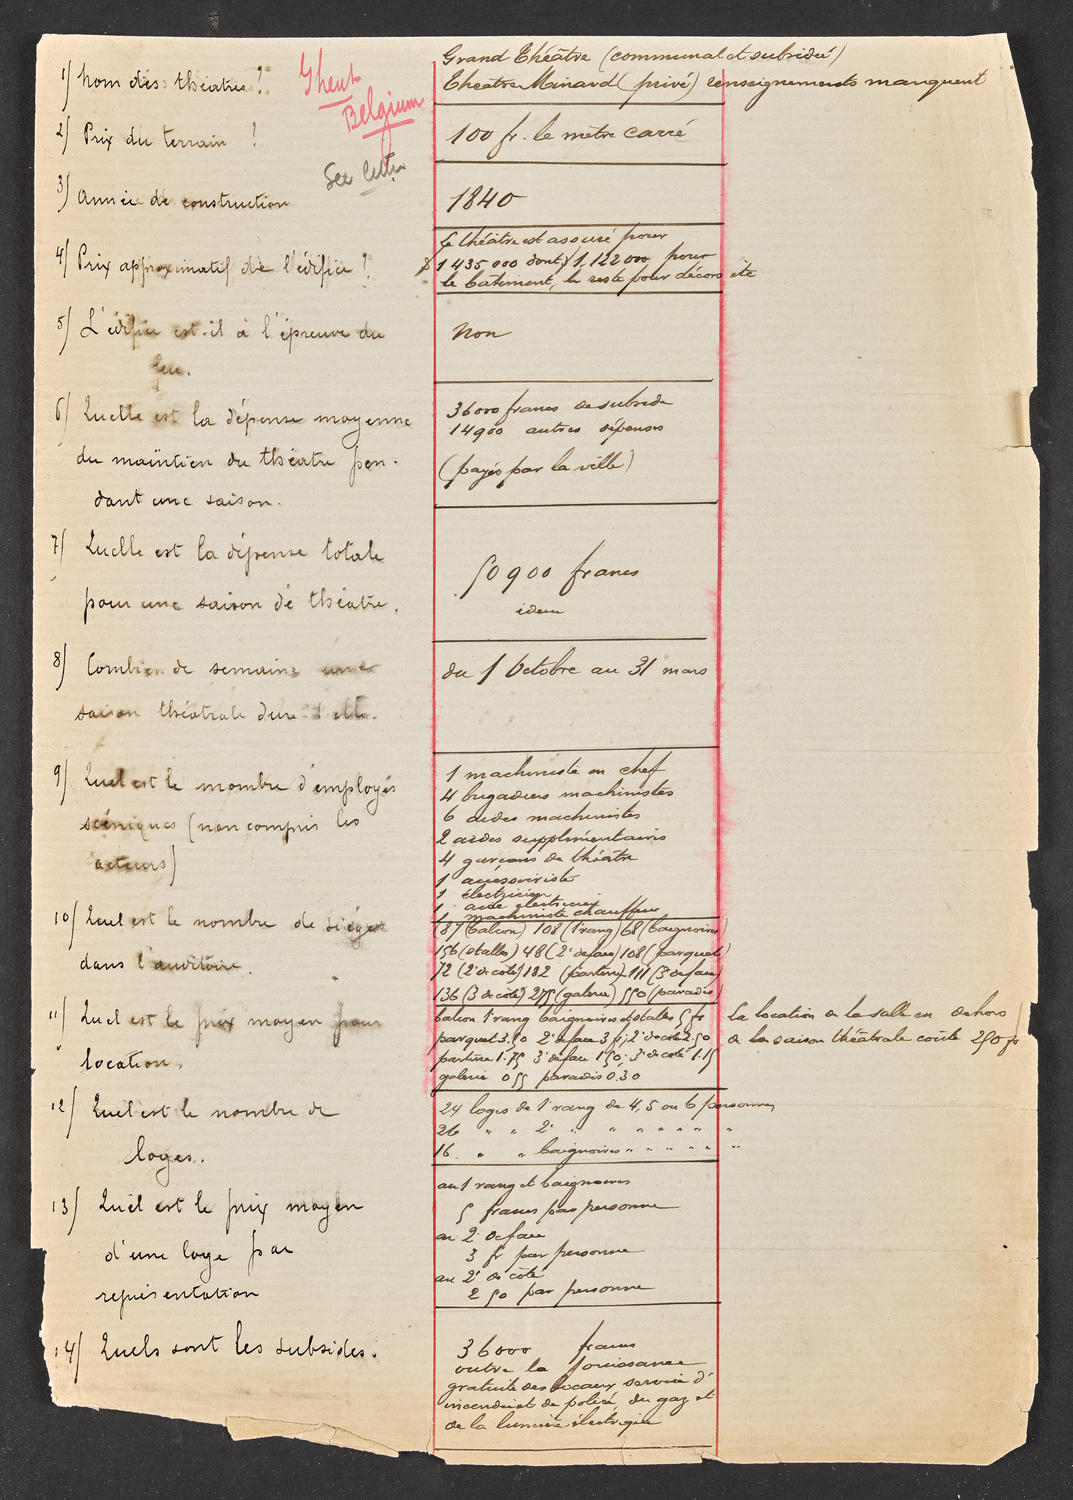 Grand Théâtre (communal et subsidié)
1/ Nom des théatres?
Théatre Minard (privé) renseignements manquent
Ghent
Belgium
See letter
2/ Prix du terrain ?
100 fr. le mètre carré
3/ Année de construction
1840
4/ Prix approximatif de l'édifice ?
Le théâtre est assuré pour
1 435 000 dont 1,122 000 pour
le bâtiment, le reste pour décors etc
5/ L'édifice est-il à l'épreuve du
feu.
Non
6/ Quelle est la dépense moyenne
du maintien du théatre pen-
dant une saison.
36000 francs de subside
14900 autres dépenses
(payés par la ville)
7/ Quelle est la dépense totale
pour une saison de théatre.
50900 francs
idem
8/ Combien de semaines une
saison théatrale dure t elle.
du 1 Octobre au 31 mars
9/ Quel est le nombre d'employés
scéniques (non compris les
acteurs)
1 machiniste en chef
4 brigadiers machinistes
6 aides machinistes
2 aides supplémentaires
4 garçons de théâtre
1 accessoiriste
1 électricien
1 aide électricien
1 machiniste chauffeur
10/ Quel est le nombre de sièges
dans l'auditoire.
(87 (balcon) 108 (1 rang) 68 (baignoires)
156 (stalles) 48 (2e de face) 108 (parquet)
72 (2e de côté) 182 (parterre) 111 (3e de face)
136 (3 de côté) 275 (galerie) 550 (paradis)
11/ Quel est le prix moyen pour
location.
balcon 1 rang baignoires et stalles 5 fr
parquet 3.50 2e de face 3 fr; 2e de côté 2.50
parterre 1.75 3e de face 1.50; 3e de côté 1.15
galerie 0.55 paradis 0.30
La location de la salle en dehors
de la saison théâtrale coûte 250 fr
12/ Quel est le nombre de
loges.
24 loges de 1 rang de 4, 5 ou 6 personnes
26 " " 2e " " " " " " "
16 " " baignoires " " " " " "
13/ Quel est le prix moyen
d'une loge par
représentation
au 1 rang et baignoires
5 francs par personne
au 2e de face
3 fr par personne
au 2e de côté
2 50 par personne
14/ Quels sont les subsides.
36000 francs
outre la jouissance
gratuite des locaux service d'
incendie et de police, du gaz et
de la lumière électrique